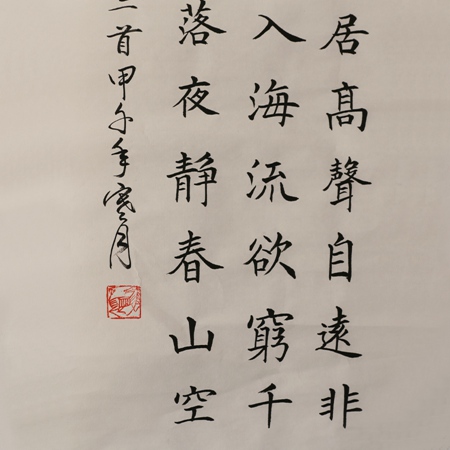 居高聲自遠非
入海流欲窮千
落夜靜春山空
三首甲午年寒月